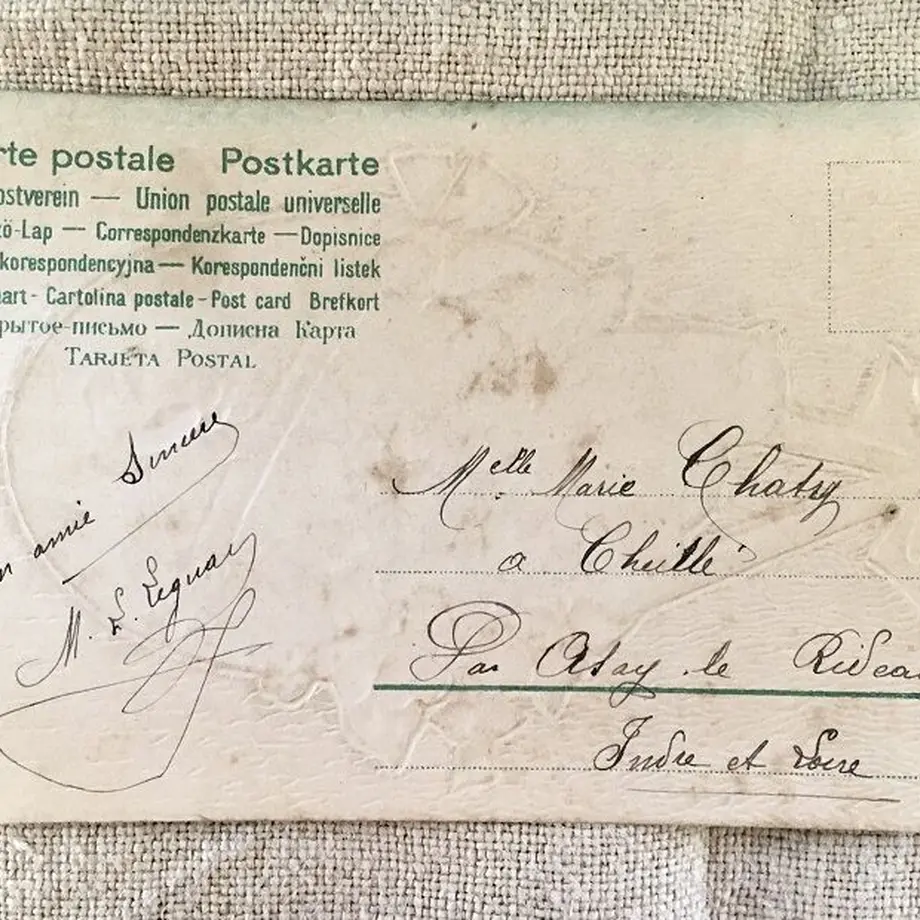 rte postale Postkarte
ostverein — Union postale universelle
ző-Lap — Correspondenzkarte — Dopisnice
korespondencyjna — Korespondenčni listek
art - Cartolina postale - Post card Brefkort
рытое-письмо — Дописна Карта
TARJETA POSTAL
n amie Sincere
M. L.
Melle Marie Chatry
a Cheillé
Par Azay le Rideau
Indre et Loire